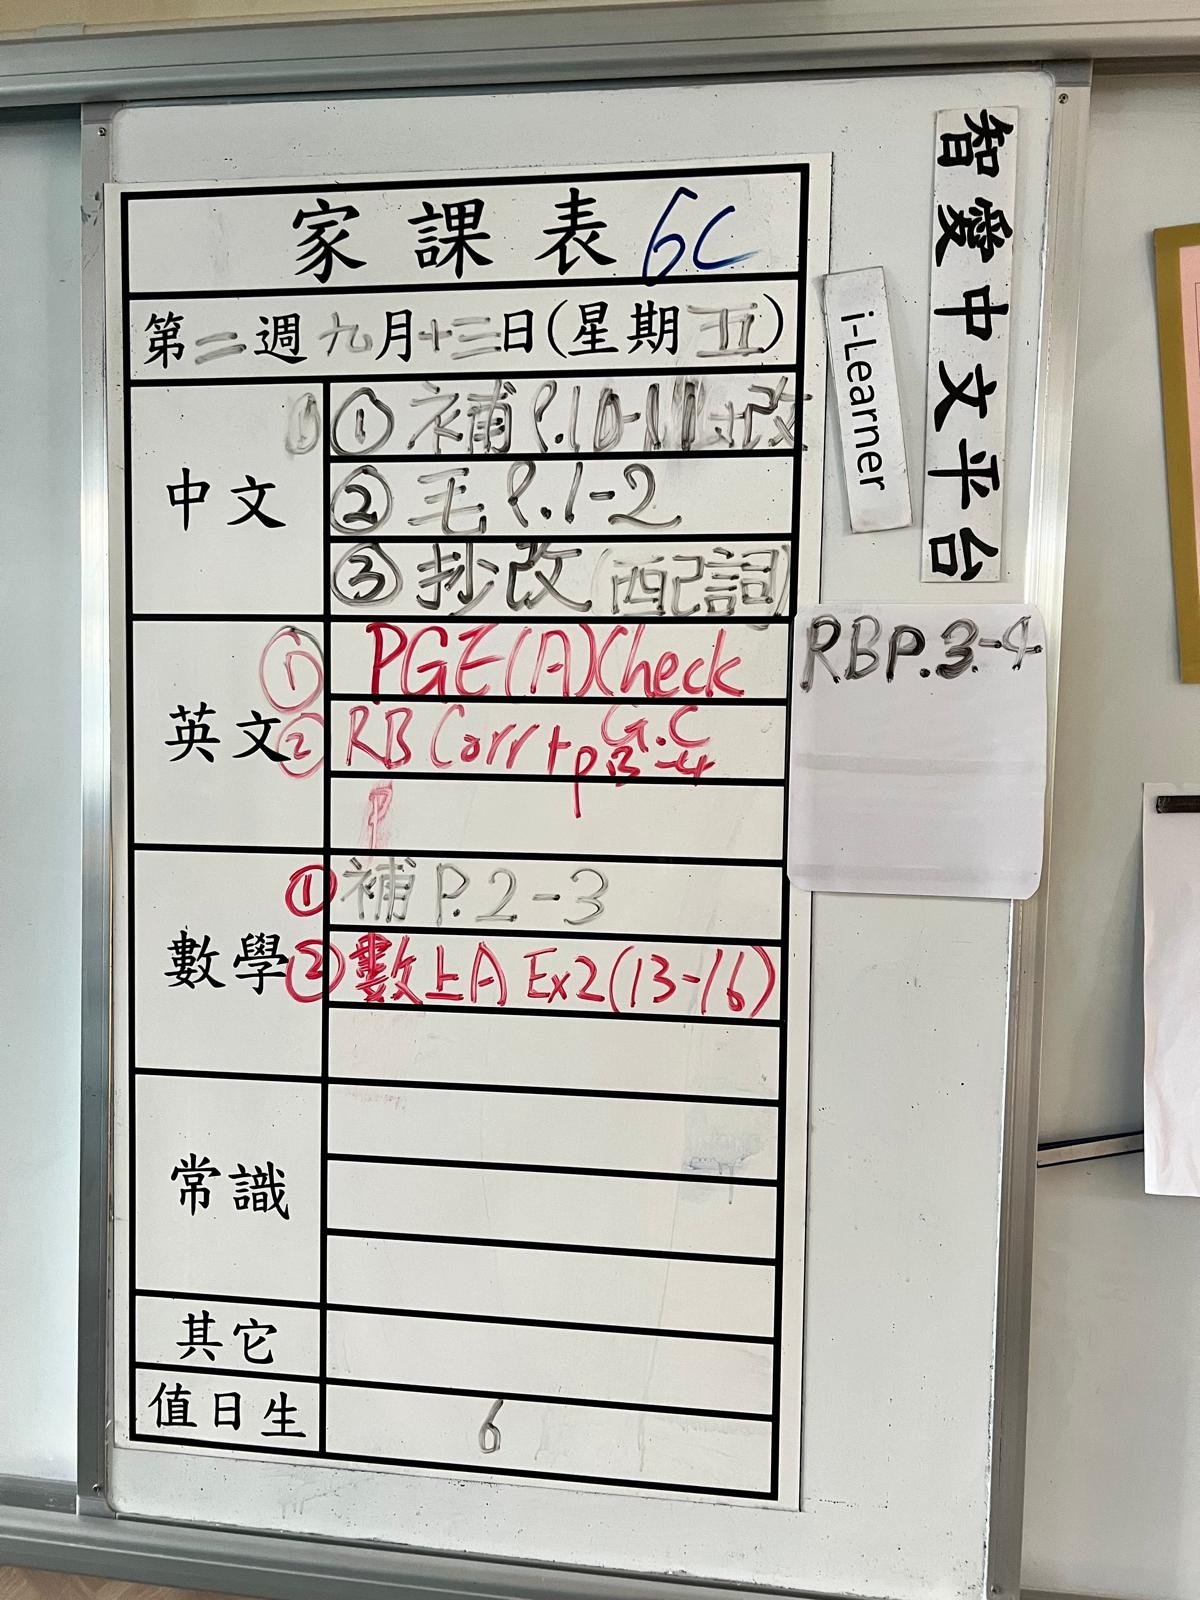 家課表 6C
第二週九月十三日(星期五)
中文
① 補 P.10-11+改
② 毛 P.1-2
③ 抄改(配詞)
英文
① PGE(A)Check
② RB Corr + G.C
P.3-4
P
數學
① 補 P.2-3
② 數上A Ex2(13-16)
常識
其它
值日生 6
智愛中文平台
i-Learner
RB P.3-4